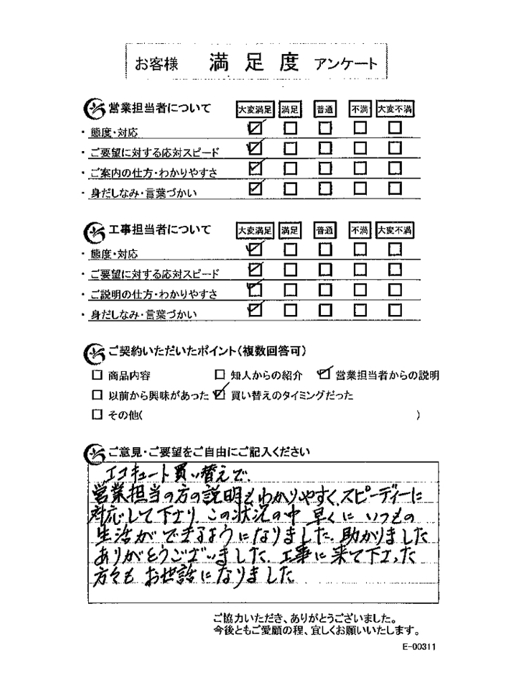 お客様 満足度 アンケート
営業担当者について 大変満足 満足 普通 不満 大変不満
・態度・対応
・ご要望に対する応対スピード
・ご案内の仕方・わかりやすさ
・身だしなみ・言葉づかい
工事担当者について 大変満足 満足 普通 不満 大変不満
・態度・対応
・ご要望に対する応対スピード
・ご説明の仕方・わかりやすさ
・身だしなみ・言葉づかい
ご契約いただいたポイント(複数回答可)
商品内容 知人からの紹介 営業担当者からの説明
以前から興味があった 買い替えのタイミングだった
その他( )
ご意見・ご要望をご自由にご記入ください
エコキュート買い替えで、
営業担当の方の説明もわかりやすく、スピーディーに
対応して下さり、この状況の中 早くに いつもの
生活ができるようになりました。助かりました
ありがとうございました。工事に来て下さった
方々も お世話になりました
ご協力いただき、ありがとうございました。
今後ともご愛顧の程、宜しくお願いいたします。
E-00311